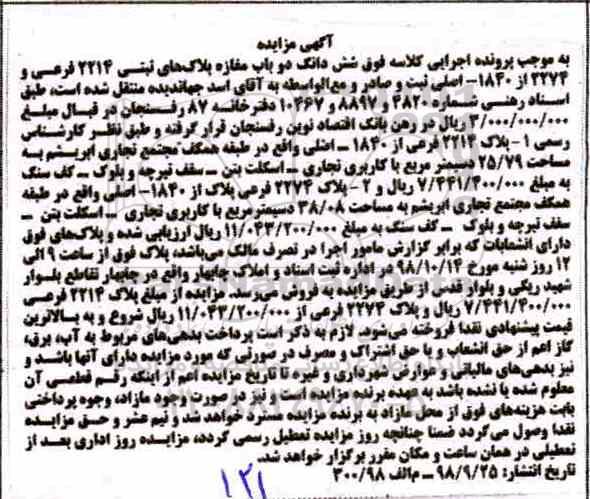 آگهی مزایده
به موجب پرونده اجرایی کلاسه فوق شش دانگ دو باب مغازه پلاک‌های ثبتی ۲۲۱۴ فرعی و
۲۲۷۴ از ۱۸۴۰- اصلی ثبت و صادر و مع‌الواسطه به آقای اسد جهاندیده منتقل شده است، طبق
اسناد رهنی شماره ۴۸۲۰ و ۸۸۹۷ و ۱۰۴۶۷ دفترخانه ۸۷ رفسنجان در قبال مبلغ
۳/۰۰۰/۰۰۰/۰۰۰ ریال در رهن بانک اقتصاد نوین رفسنجان قرار گرفته و طبق نظر کارشناس
رسمی ۱- پلاک ۲۲۱۴ فرعی از ۱۸۴۰ ــ اصلی واقع در طبقه همکف مجتمع تجاری ابریشم به
مساحت ۲۵/۷۹ دسیمتر مربع با کاربری تجاری ــ اسکلت بتن ــ سقف تیرچه و بلوک ــ کف سنگ
به مبلغ ۷/۴۴۱/۴۰۰/۰۰۰ ریال و ۲- پلاک ۲۲۷۴ فرعی پلاک از ۱۸۴۰- اصلی واقع در طبقه
همکف مجتمع تجاری ابریشم به مساحت ۳۸/۰۸ دسیمترمربع با کاربری تجاری ــ اسکلت بتن ــ
سقف تیرچه و بلوک ــ کف سنگ به مبلغ ۱۱/۰۴۳/۲۰۰/۰۰۰ ریال ارزیابی شده و پلاک‌های فوق
دارای انشعابات که برابر گزارش مامور اجرا در تصرف مالک می‌باشد، پلاک فوق از ساعت ۹ الی
۱۲ روز شنبه مورخ ۹۸/۱۰/۱۴ در اداره ثبت اسناد و املاک چابهار واقع در چابهار تقاطع بلوار
شهید ریگی و بلوار قدس از طریق مزایده به فروش می‌رسد. مزایده از مبلغ پلاک ۲۲۱۴ فرعی
۷/۴۴۱/۴۰۰/۰۰۰ ریال و پلاک ۲۲۷۴ فرعی از ۱۱/۰۴۳/۲۰۰/۰۰۰ ریال شروع و به بالاترین
قیمت پیشنهادی نقدا فروخته می‌شود. لازم به ذکر است پرداخت بدهی‌های مربوط به آب، برق،
گاز اعم از حق انشعاب و یا حق اشتراک و مصرف در صورتی که مورد مزایده دارای آنها باشد و
نیز بدهی‌های مالیاتی و عوارض شهرداری و غیره تا تاریخ مزایده اعم از اینکه رقم قطعی آن
معلوم شده یا نشده باشد به عهده برنده مزایده است و نیز در صورت وجود مازاد، وجوه پرداختی
بابت هزینه‌های فوق از محل مازاد به برنده مزایده مسترد خواهد شد و نیم عشر و حق مزایده
نقدا وصول می‌گردد ضمنا چنانچه روز مزایده تعطیل رسمی گردد، مزایده روز اداری بعد از
تعطیلی در همان ساعت و مکان مقرر برگزار خواهد شد.
تاریخ انتشار: ۹۸/۹/۲۵ ــ م‌الف ۳۰۰/۹۸
۱۲۱